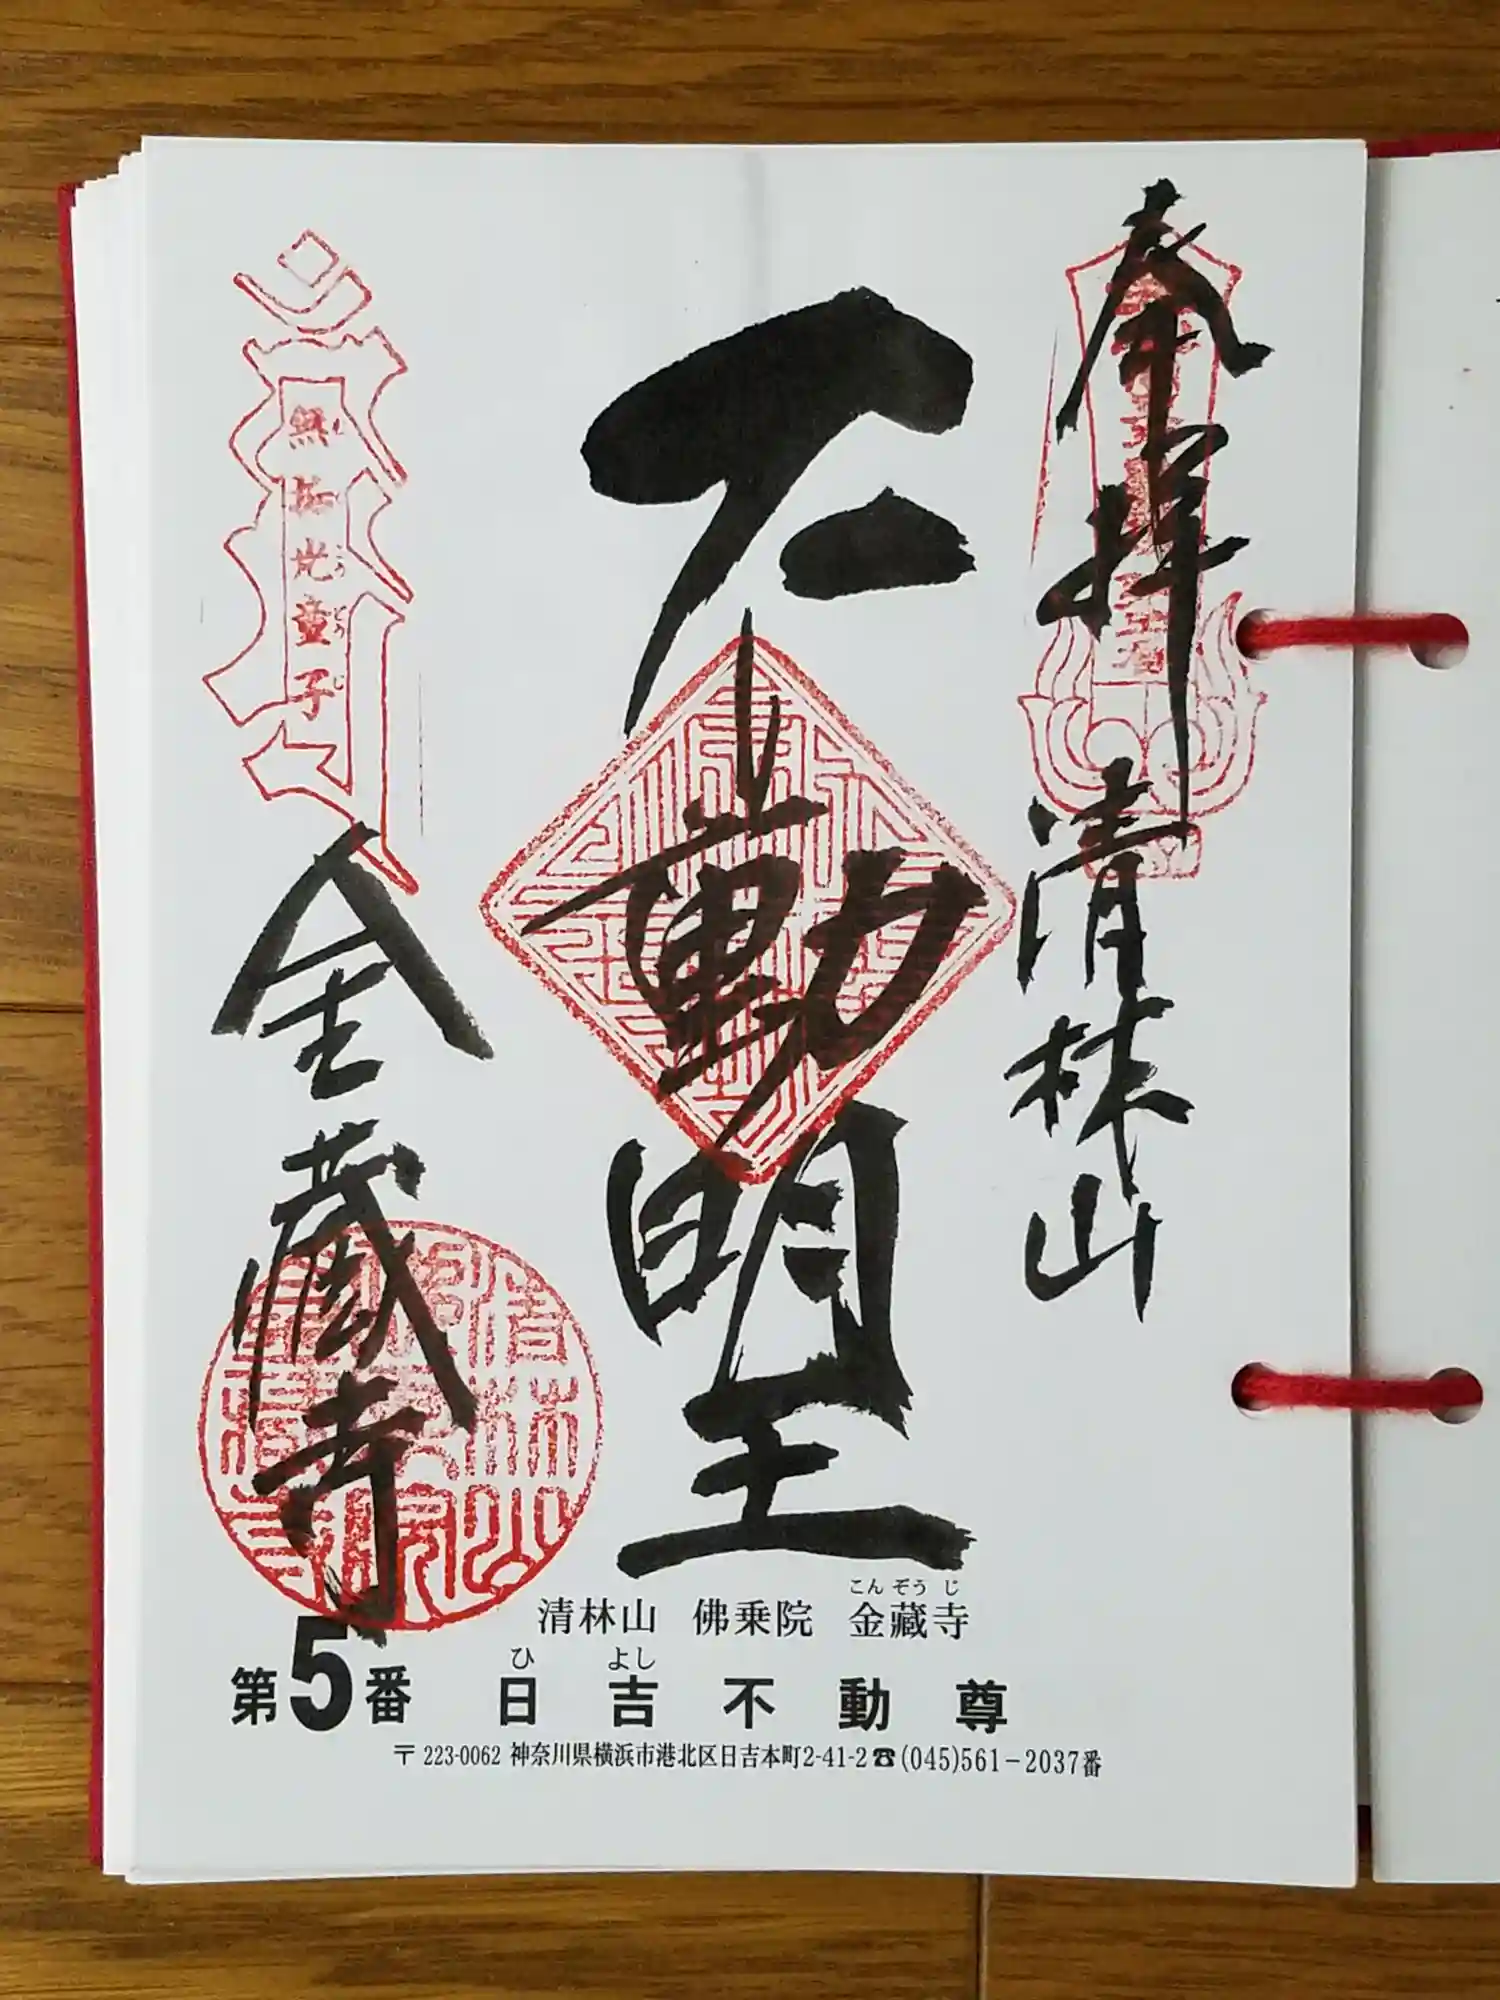 奉拝
清林山
不動明王
無垢光童子
むくこうどうじ
金蔵寺
こんぞうじ
清林山 佛乗院 金藏寺
ひよし
第5番 日吉不動尊
〒223-0062 神奈川県横浜市港北区日吉本町2-41-2☎(045)561−2037番